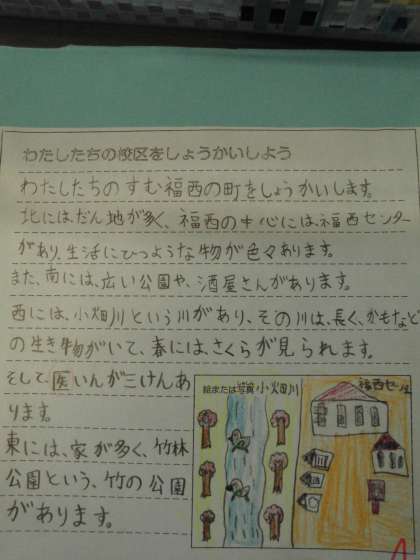 わたしたちの校区をしょうかいしよう
わたしたちのすむ福西の町をしょうかいします。
北には、だん地が多く、福西の中心には、福西センター
があり、生活にひつような物が色々あります。
また、南には、広い公園や、酒屋さんがあります。
西には、小畑川という川があり、その川は、長く、かもなど
の生き物がいて、春には、さくらが見られます。
そして、医いんが三けんあ
ります。
東には、家が多く、竹林
公園という、竹の公園
があります。
絵または写真 小畑川
福西センター